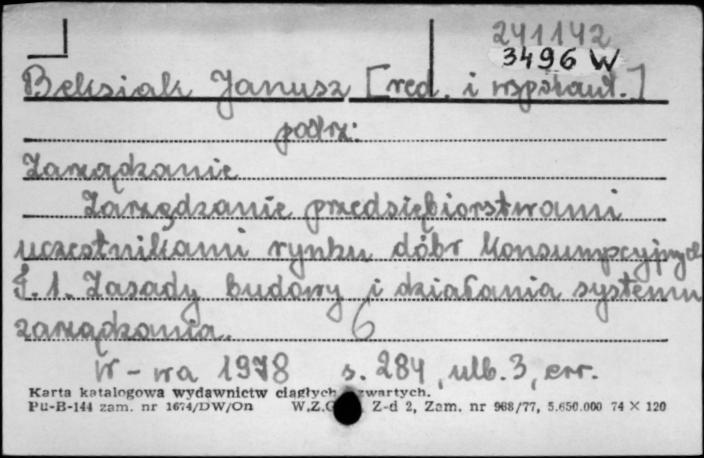 241142
3496 W
Beksiak Janusz [red. i współaut.]
patrz:
Zarządzanie
Zarządzanie przedsiębiorstwami
uczestnikami rynku dóbr konsumpcyjnych
T. 1. Zasady budowy i działania systemu
zarządzania. 6
W-wa 1978 s. 284, ulb. 3, err.
Karta katalogowa wydawnictw ciągłych zwartych.
Pu-B-144 zam. nr 1674/DW/On W.Z.G. Z-d 2, Zam. nr 968/77, 5.650.000 74 X 120